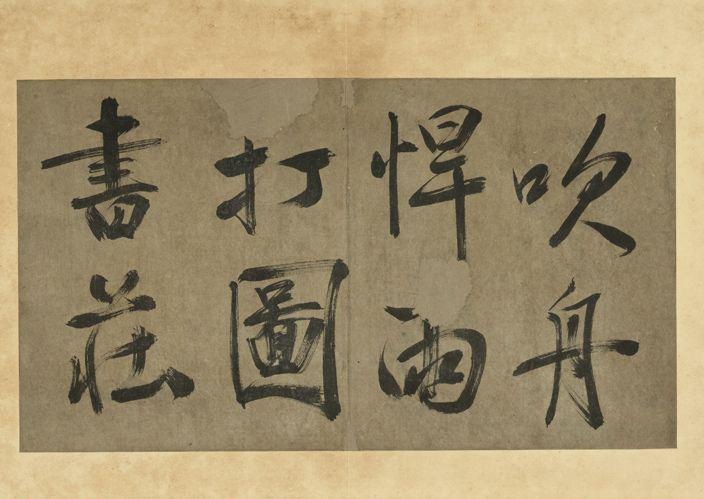 吹舟
悍雨
打圖
書莊